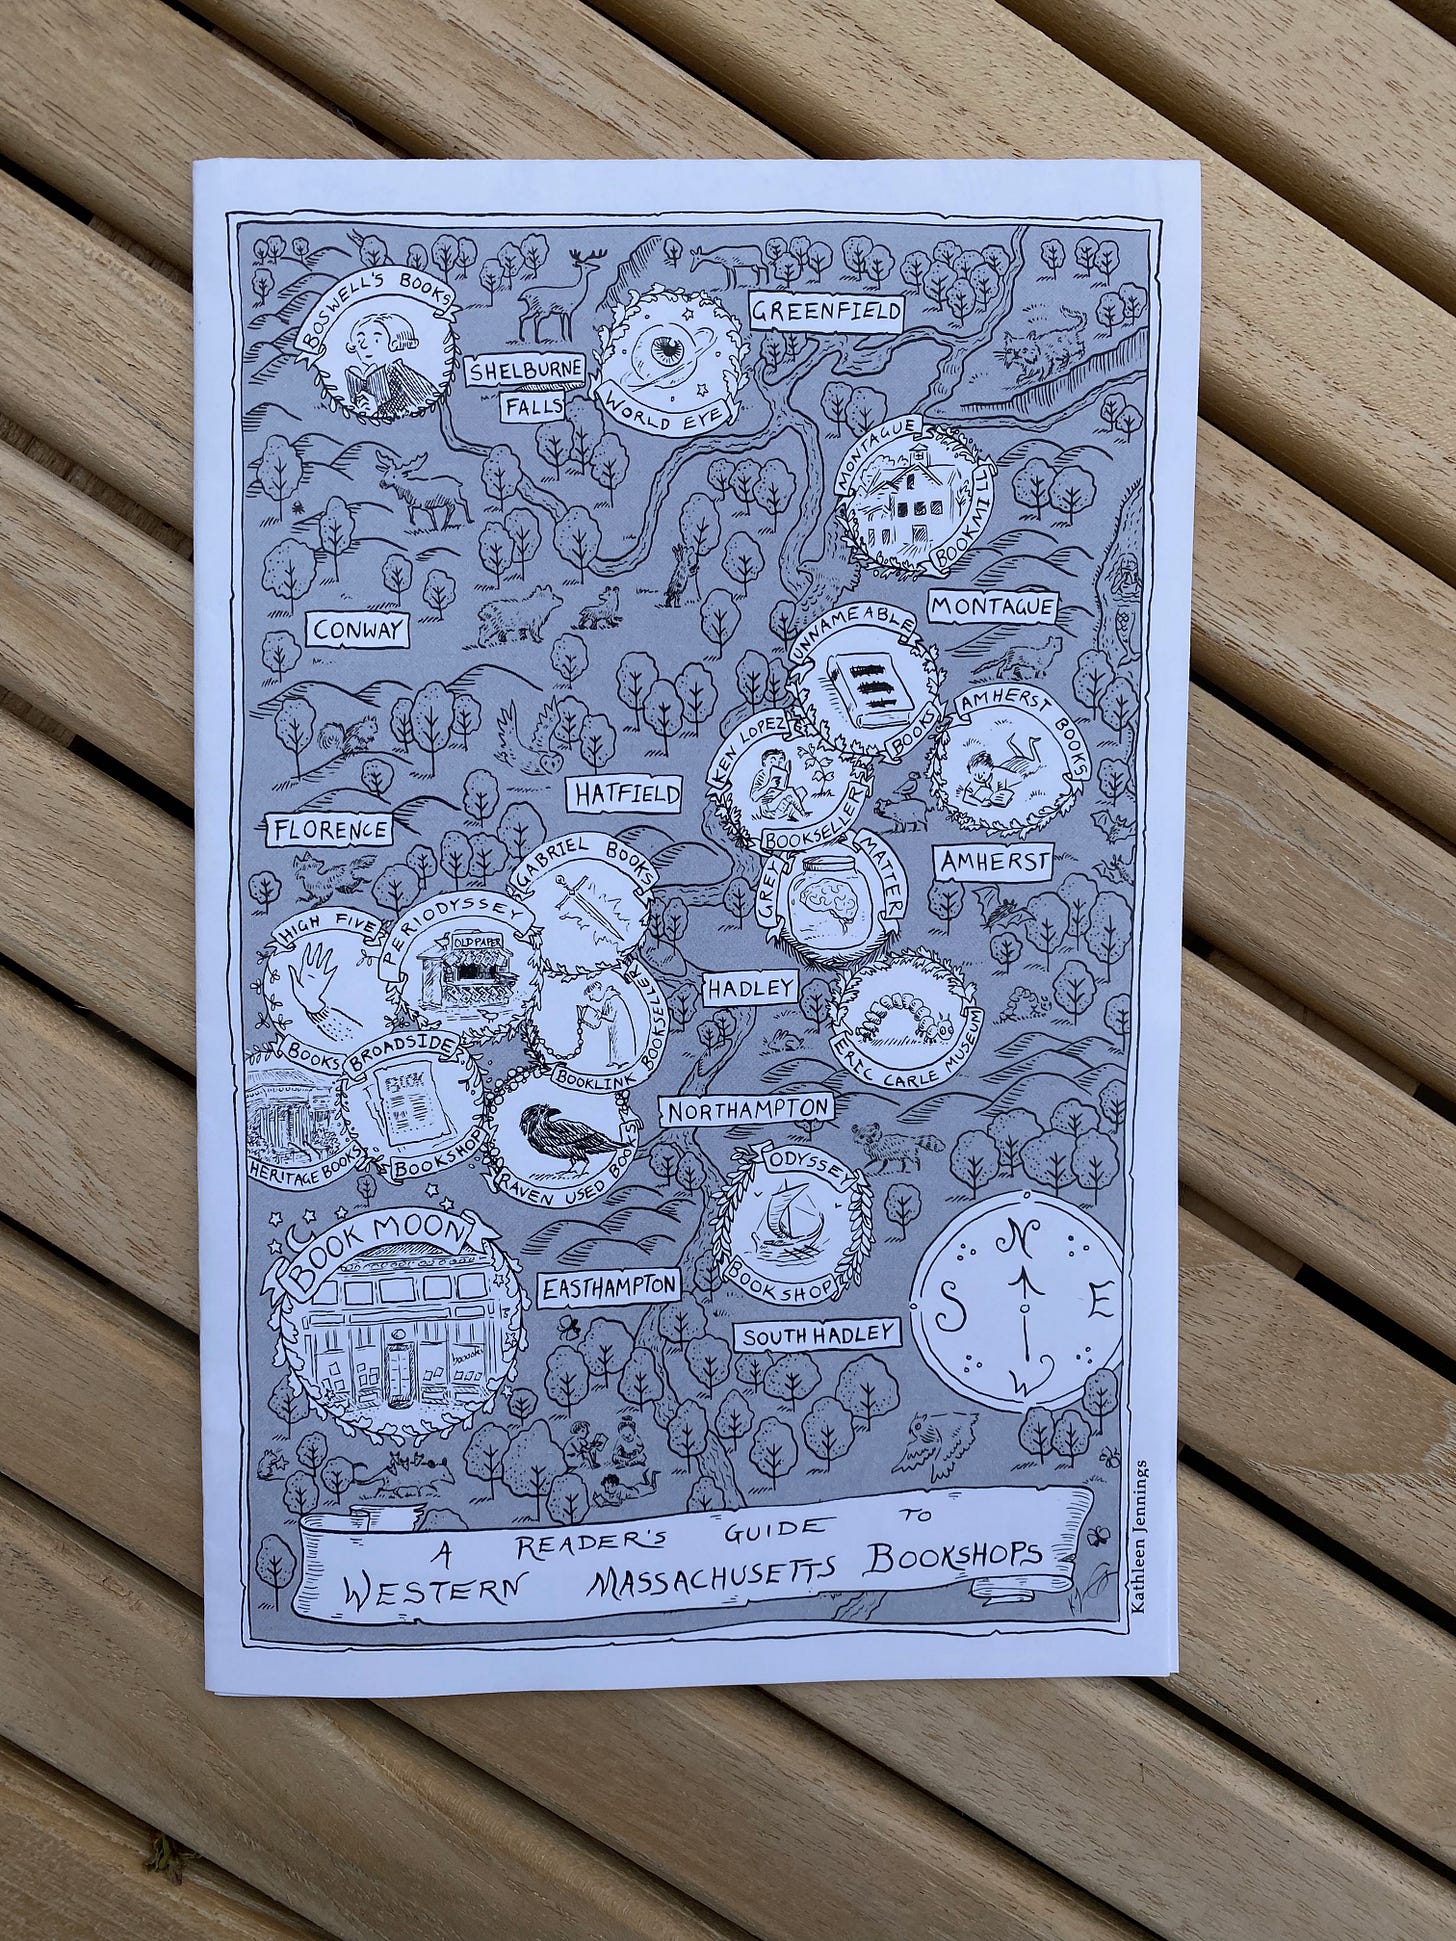 BOSWELL'S BOOKS
SHELBURNE
FALLS
WORLD EYE
GREENFIELD
MONTAGUE
BOOKMILL
MONTAGUE
CONWAY
UNNAMEABLE
BOOKS
KEN LOPEZ
BOOKSELLER
AMHERST BOOKS
HATFIELD
FLORENCE
AMHERST
GABRIEL BOOKS
GREY MATTER
HIGH FIVE
BOOKS
PERIODYSSEY
OLD PAPER
HADLEY
BOOKLINK BOOKSELLER
ERIC CARLE MUSEUM
BROADSIDE
BOOK
BOOKSHOP
HERITAGE BOOKS
RAVEN USED BOOKS
NORTHAMPTON
ODYSSEY
BOOKSHOP
BOOK MOON
EASTHAMPTON
SOUTH HADLEY
N
S E
W
A READER'S GUIDE TO
WESTERN MASSACHUSETTS BOOKSHOPS
Kathleen Jennings